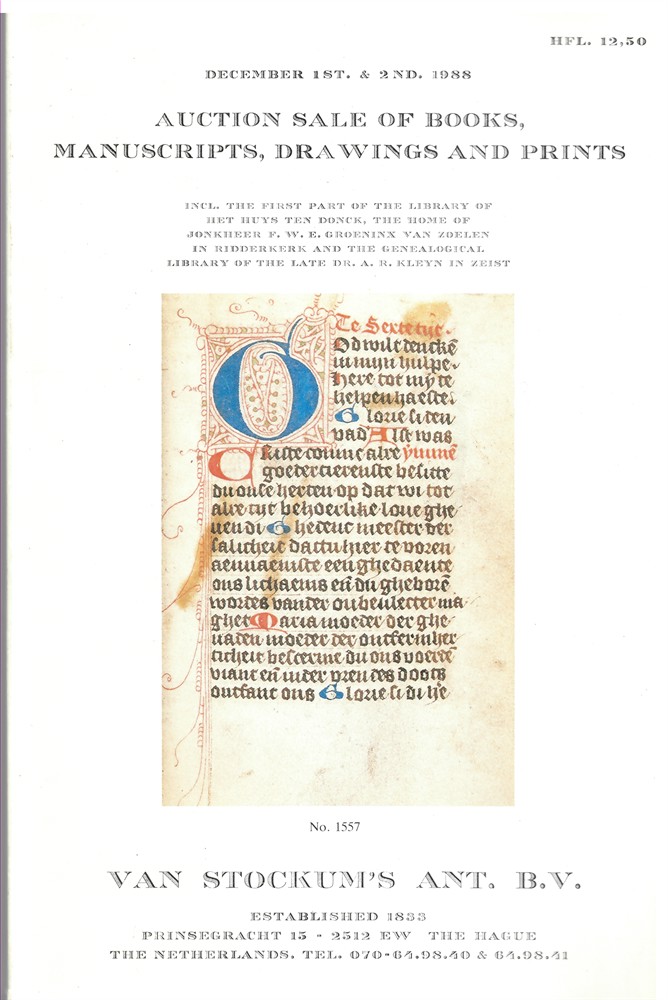 HFL. 12,50
DECEMBER 1ST. & 2ND. 1988
AUCTION SALE OF BOOKS,
MANUSCRIPTS, DRAWINGS AND PRINTS
INCL. THE FIRST PART OF THE LIBRARY OF
HET HUYS TEN DONCK, THE HOME OF
JONKHEER F. W. E. GROENINX VAN ZOELEN
IN RIDDERKERK AND THE GENEALOGICAL
LIBRARY OF THE LATE DR. A. R. KLEYN IN ZEIST
Te Sexte tijt.
God wilt dencke͞
in mijn hulpe.
here tot my te
helpen haeste.
Glorie si den
vad Als t was
Criste comme alre
goedertierenste besitte
du onse herten op dat wi tot
alre tijt behoerlike loue ghe
uen di Ghedenc meester der
salicheit dattu hier te voren
aennaemste een ghedaente
ons lichaems en͞ du ghebore͞
wordes vander onbeulecter ma
ghet Maria moeder der ghe
naden moeder der ontfermher
ticheit bescerme du ons
viant en͞ inder vren des doots
ontfanc ons Glorie si di he
No. 1557
VAN STOCKUM'S ANT. B.V.
ESTABLISHED 1833
PRINSEGRACHT 15 - 2512 EW THE HAGUE
THE NETHERLANDS. TEL. 070-64.98.40 & 64.98.41